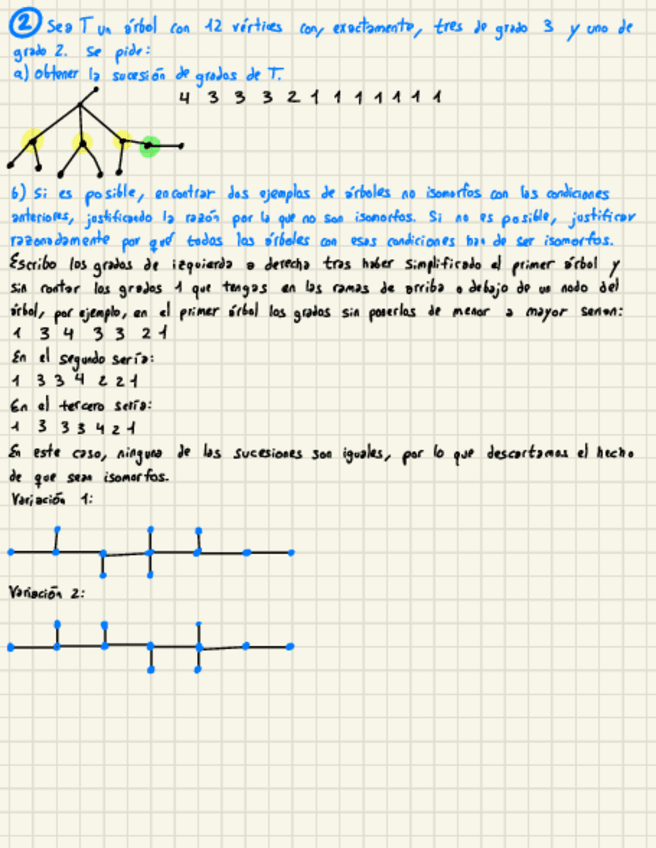 ② Sea T un árbol con 12 vértices con, exactamente, tres de grado 3 y uno de
grado 2. Se pide:
a) Obtener la sucesión de grados de T.
4 3 3 3 2 1 1 1 1 1 1 1
b) Si es posible, encontrar dos ejemplos de árboles no isomorfos con las condiciones
anteriores, justificando la razón por la que no son isomorfos. Si no es posible, justificar
razonadamente por qué todos los árboles con esas condiciones han de ser isomorfos.
Escribo los grados de izquierda a derecha tras haber simplificado el primer árbol y
sin contar los grados 1 que tengas en las ramas de arriba o debajo de un nodo del
árbol, por ejemplo, en el primer árbol los grados sin ponerlos de menor a mayor serían:
1 3 4 3 3 2 1
En el segundo sería:
1 3 3 4 2 2 1
En el tercero sería:
1 3 3 3 4 2 1
En este caso, ninguna de las sucesiones son iguales, por lo que descartamos el hecho
de que sean isomorfos.
Variación 1:
Variación 2: